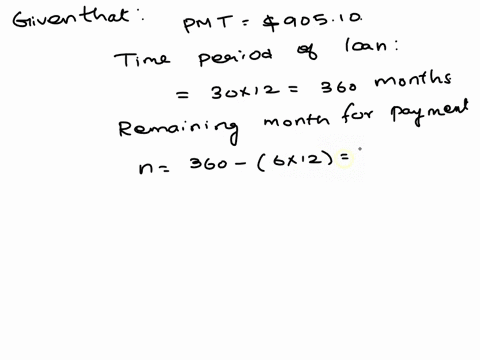 Given that: PMT = $905.10.
Time period of loan:
= 30x12 = 360 months
Remaining month for payment
n = 360 - (6x12) =